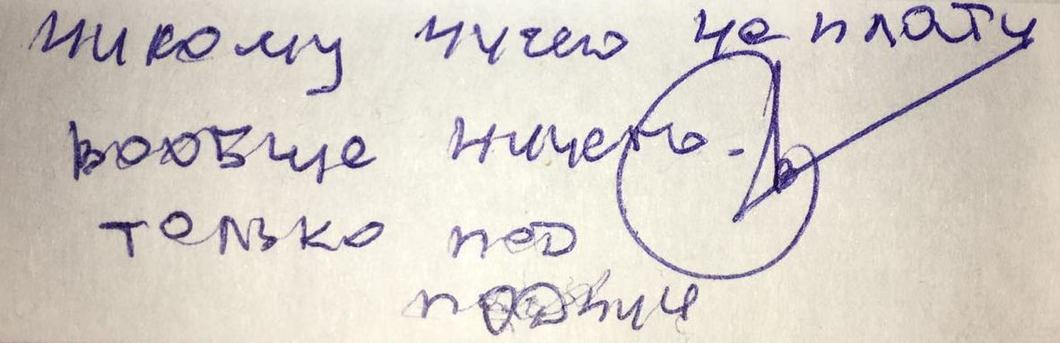 никому ничего не плачу
вообще ничего.
только под